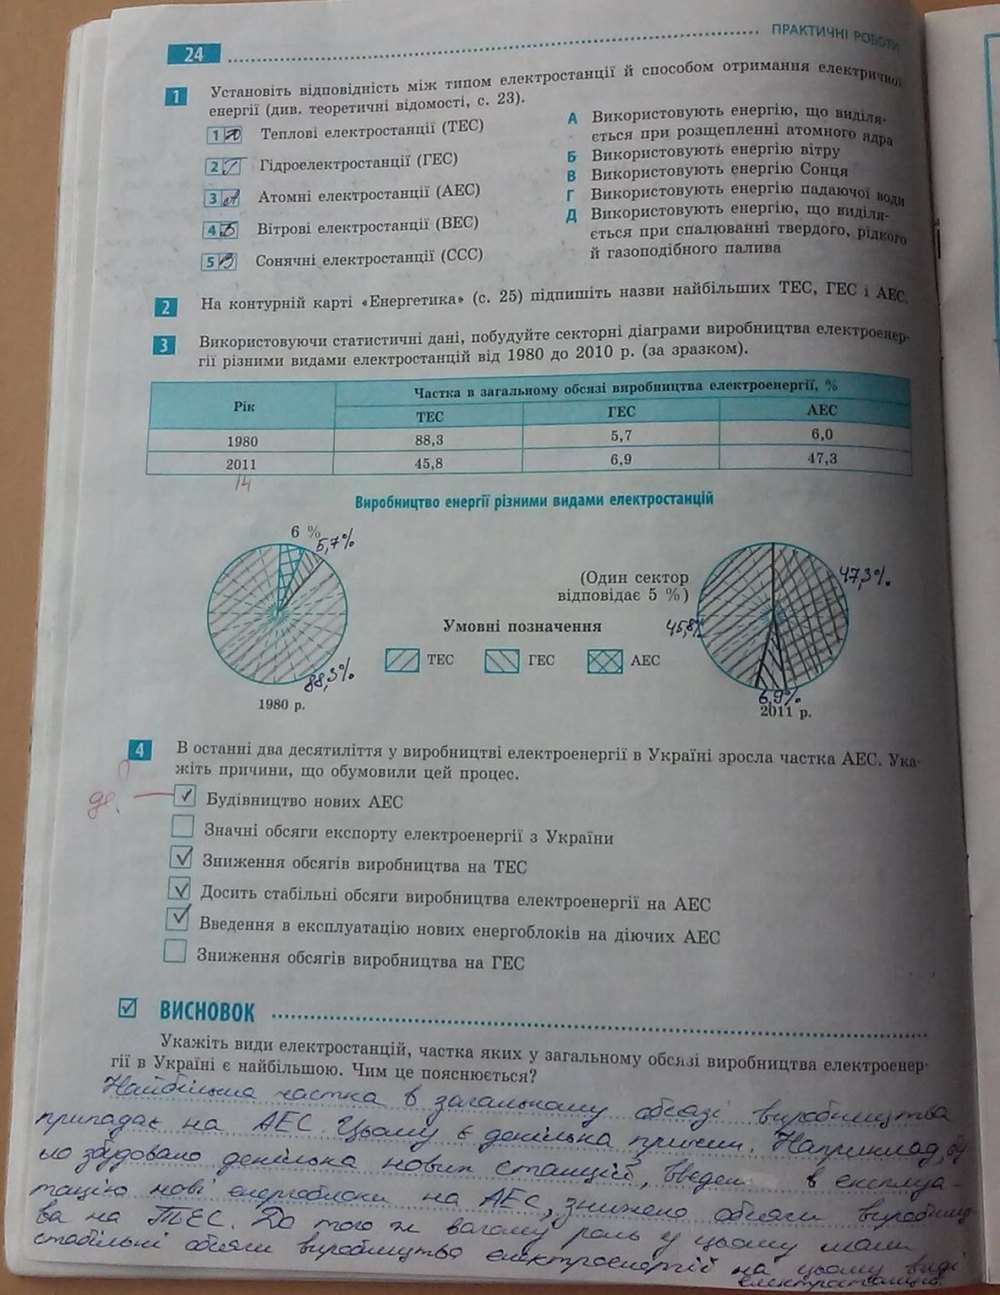 24
ПРАКТИЧНІ РОБОТИ
1 Установіть відповідність між типом електростанції й способом отримання електричної
енергії (див. теоретичні відомості, с. 23).
1 Д Теплові електростанції (ТЕС)
2 Г Гідроелектростанції (ГЕС)
3 А Атомні електростанції (АЕС)
4 Б Вітрові електростанції (ВЕС)
5 В Сонячні електростанції (ССС)
А Використовують енергію, що виділя-
ється при розщепленні атомного ядра
Б Використовують енергію вітру
В Використовують енергію Сонця
Г Використовують енергію падаючої води
Д Використовують енергію, що виділя-
ється при спалюванні твердого, рідкого
й газоподібного палива
2 На контурній карті «Енергетика» (с. 25) підпишіть назви найбільших ТЕС, ГЕС і АЕС.
3 Використовуючи статистичні дані, побудуйте секторні діаграми виробництва електроенер-
гії різними видами електростанцій від 1980 до 2010 р. (за зразком).
Рік Частка в загальному обсязі виробництва електроенергії, %
ТЕС ГЕС АЕС
1980 88,3 5,7 6,0
2011 45,8 6,9 47,3
14
Виробництво енергії різними видами електростанцій
6 %
5,7%
88,3%
1980 р.
(Один сектор
відповідає 5 %)
Умовні позначення
ТЕС ГЕС АЕС
47,3%
45,8%
6,9%
2011 р.
4 В останні два десятиліття у виробництві електроенергії в Україні зросла частка АЕС. Ука-
жіть причини, що обумовили цей процес.
де?
Будівництво нових АЕС
Значні обсяги експорту електроенергії з України
Зниження обсягів виробництва на ТЕС
Досить стабільні обсяги виробництва електроенергії на АЕС
Введення в експлуатацію нових енергоблоків на діючих АЕС
Зниження обсягів виробництва на ГЕС
ВИСНОВОК
Укажіть види електростанцій, частка яких у загальному обсязі виробництва електроенер-
гії в Україні є найбільшою. Чим це пояснюється?
Найбільша частка в загальному обсязі виробництва
припадає на АЕС. Цьому є декілька причин. Наприклад, бу
ло збудовано декілька нових станцій, введен в експлуа-
тацію нові енергоблоки на АЕС, знижено обсяги виробниц-
ва на ТЕС. До того ж вагому роль у цьому мали
стабільні обсяги виробництва електроенергії на цьому виді
електростанцій.